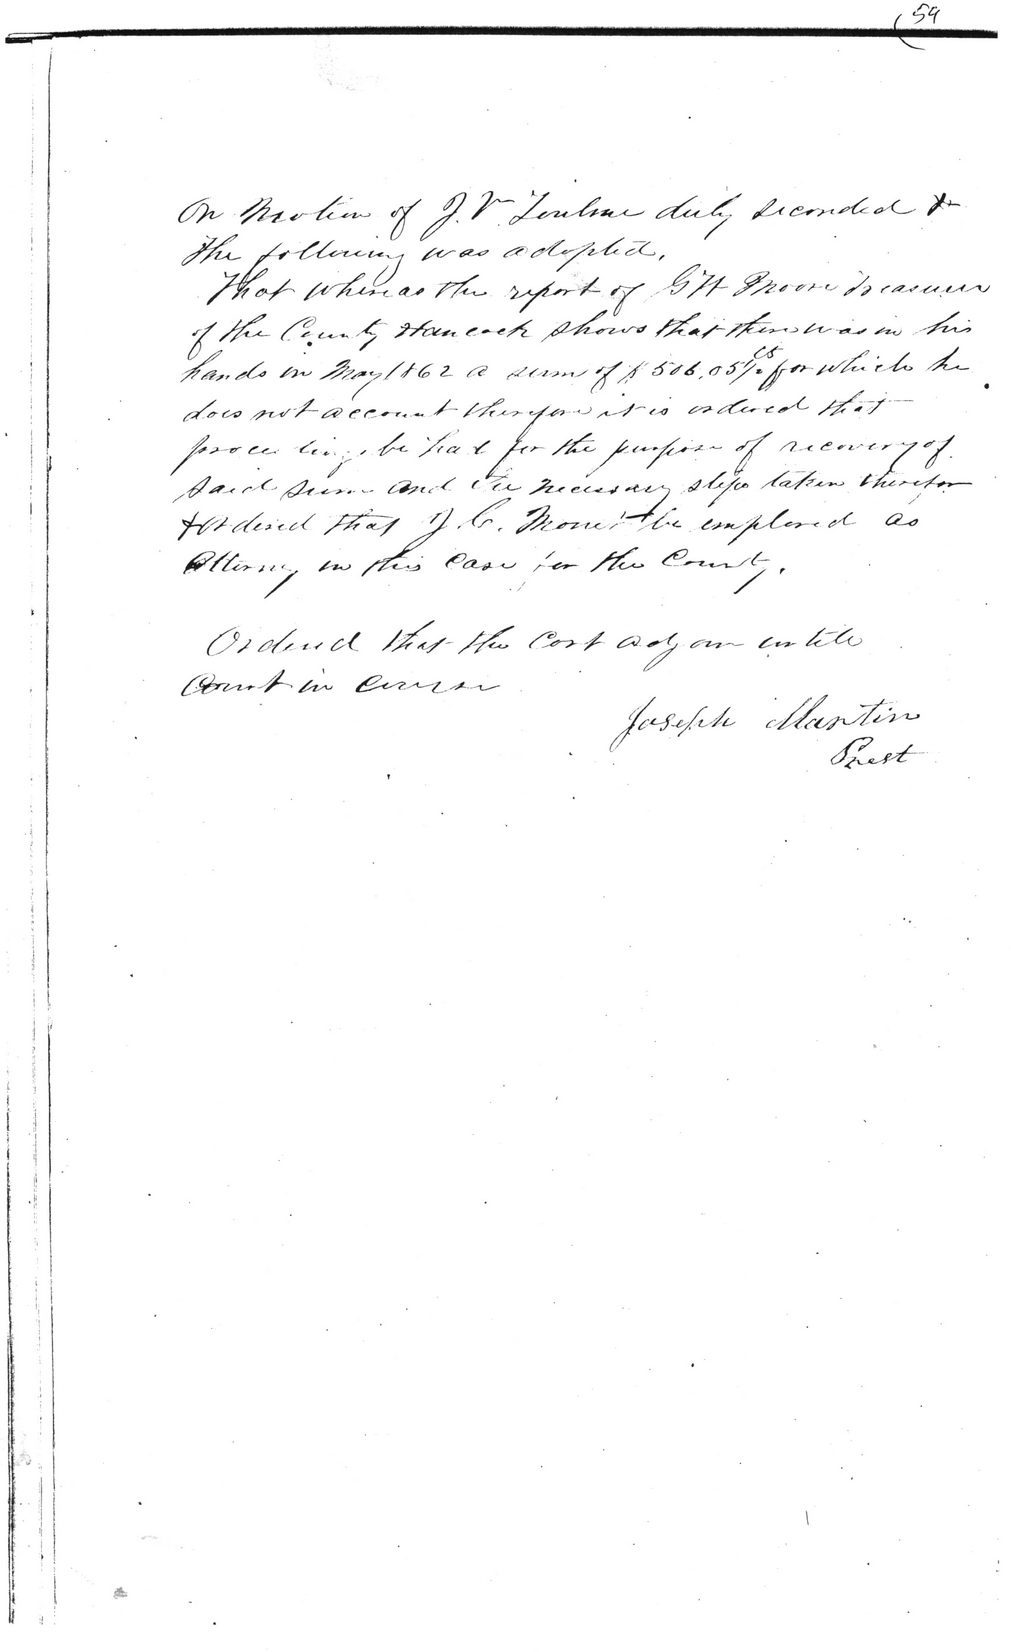 54
On Motion of J. V. Toulme duly seconded &
the following was adopted.
That whereas the report of G H Moore Treasurer
of the County Hancock shows that there was in his
hands in May 1862 a sum of $506.05 cts for which he
does not account therefore it is ordered that
proceedings be had for the purpose of recovery of
said sum and the necessary steps taken therefor
& ordered that J. C. be employed as
Attorney in this case for the County.
Ordered that the Cort adjourn untill
Court in course
Joseph Martin
Prest